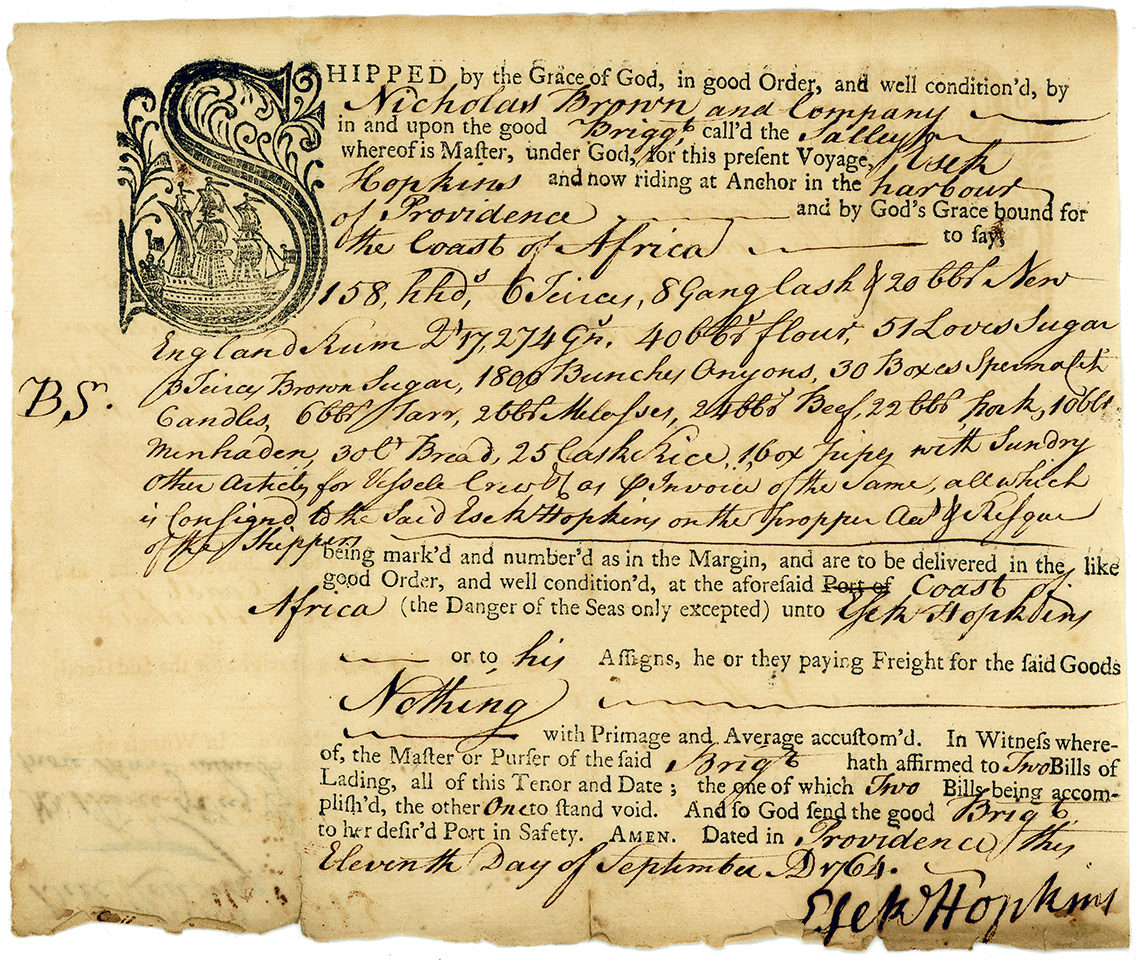 SHIPPED by the Grace of God, in good Order, and well condition'd, by
Nicholas Brown and Company
in and upon the good Briggt. call'd the Salley
whereof is Maſter, under God, for this preſent Voyage, Esek
Hopkins and now riding at Anchor in the harbour
of Providence and by God's Grace bound for
the Coast of Africa to ſay,
158, hhds, 6 Teirces, 8 Gang Cask & 20 bbls New
England Rum Qt 17,274 Gns. 40 bbls flour, 51 Loves Sugar
3 Teirces Brown Sugar, 1800 Bunches Onyons, 30 Boxes Spermaciti
BS.
Candles, 6 bbls Tarr, 2 bbls Melasses, 24 bbls Beef, 22 bbls Pork, 10 bbls
Menhaden, 30 Ct Bread, 25 Cask Rice, 1 box pipes with Sundry
other Articles for Vessels Crew &c as ⅌ Invoice of the Same, all which
is Consignd to the Said Esek Hopkins on the propper Acct & Resque
of the Shippers
being mark'd and number'd as in the Margin, and are to be delivered in the like
good Order, and well condition'd, at the aforeſaid Port of Coast of
Africa (the Danger of the Seas only excepted) unto Esek Hopkins
or to his Aſſigns, he or they paying Freight for the ſaid Goods
Nothing
with Primage and Average accuſtom'd. In Witneſs where-
of, the Maſter or Purſer of the ſaid Brigt hath affirmed to Two Bills of
Lading, all of this Tenor and Date; the one of which Two Bills being accom-
pliſh'd, the other One to ſtand void. And ſo God ſend the good Brigt.
to her deſir'd Port in Safety. AMEN. Dated in Providence this
Eleventh Day of September AD 1764.
Esek Hopkins